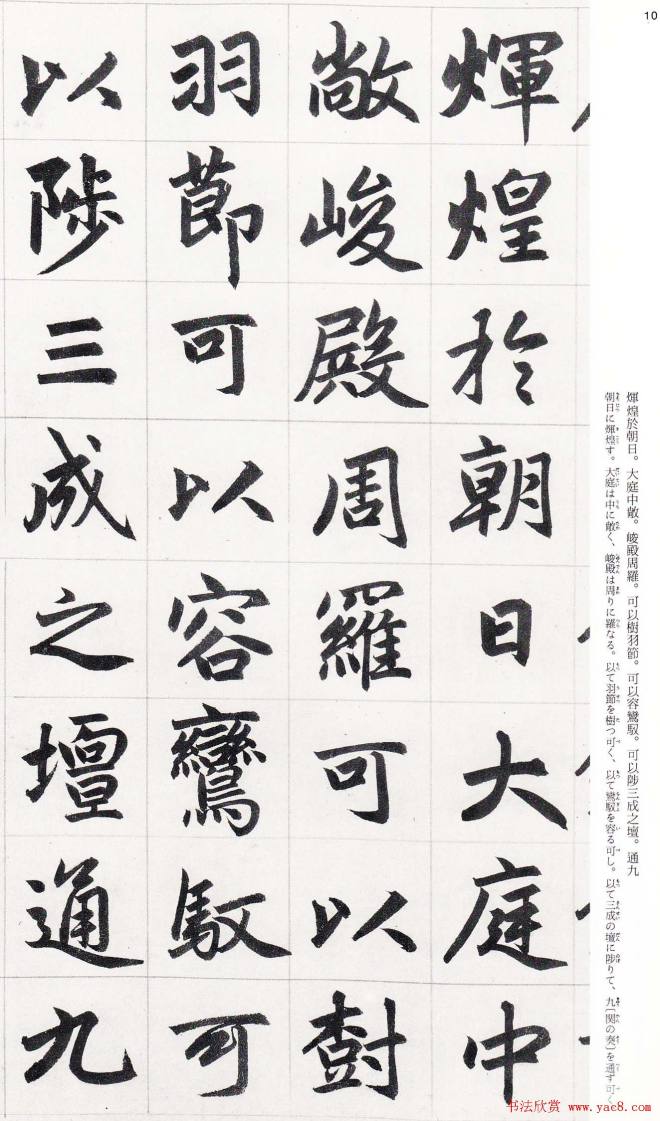 10
輝煌於朝日。大庭中敞。峻殿周羅。可以樹羽節。可以容鸞馭。可以陟三成之壇。通九
朝日に輝煌す。大庭は中に敞く、峻殿は周りに羅なる。以て羽節を樹つ可く、以て鸞馭を容る可し。以て三成の壇に陟りて、九〔関の奏〕を通ず可く
煇煌於朝日大庭中
敞峻殿周羅可以樹
羽節可以容鸞馭可
以陟三成之壇通九
书法欣赏 www.yac8.com